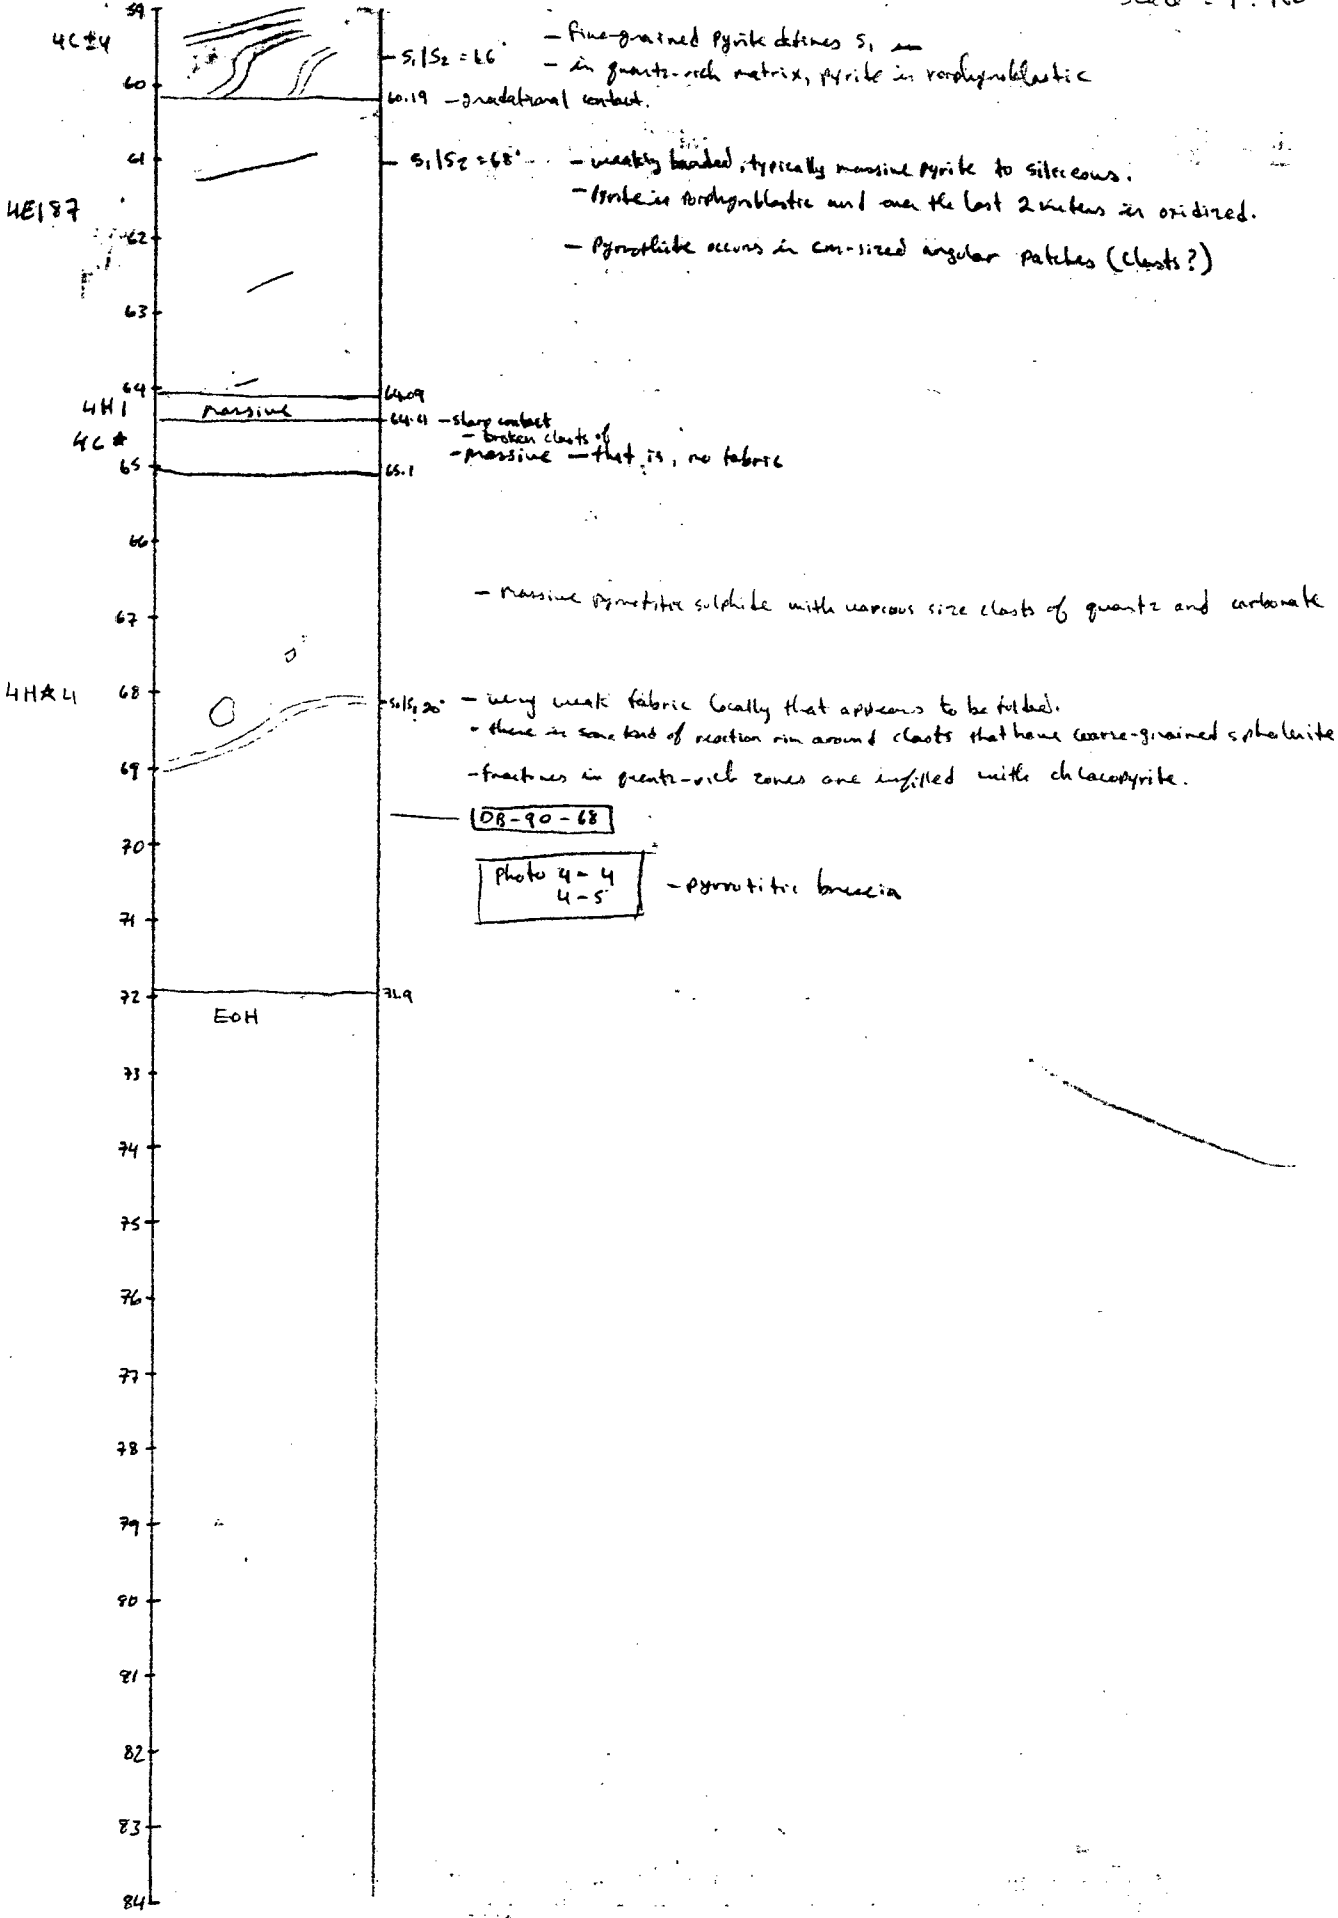 59
4C±4
- fine-grained pyrite defines S₁
- S₁/S₂ = 66°
- in quartz-rich matrix, pyrite is porphyroblastic
60
60.19 - gradational contact.
61
- S₁/S₂ = 68°
- weakly banded, typically massive pyrite to siliceous.
- Pyrite is porphyroblastic and over the last 2 meters is oxidized.
4E187
62
- Pyrrothite occurs in cm-sized angular patches (clasts?)
63
64
64.09
4H1
massive
- sharp contact
- broken clasts of
4C*
- massive - that is, no fabric
65
65.1
66
- massive pyrrotitic sulphide with various size clasts of quartz and carbonate
67
4H*4
68
- very weak fabric locally that appears to be folded.
- there is some kind of reaction rim around clasts that have coarse-grained sphalerite
69
- fractures in quartz-rich zones are infilled with chlacopyrite.
DB-90-68
70
Photo 4-4
4-5
- pyrrotitic breccia
71
71.9
72
EOH
73
74
75
76
77
78
79
80
81
82
83
84